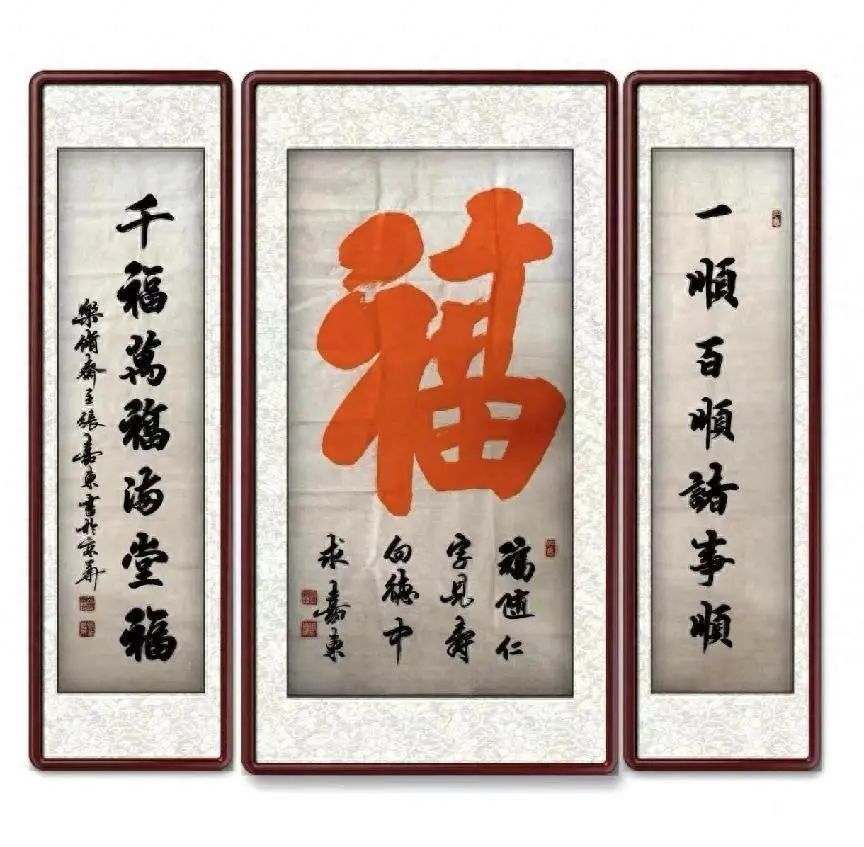 一順百順諸事順
福
福随仁
字見壽
向德中
求 嘉東
千福萬福滿堂福
樂脩齋主張嘉東書於京華